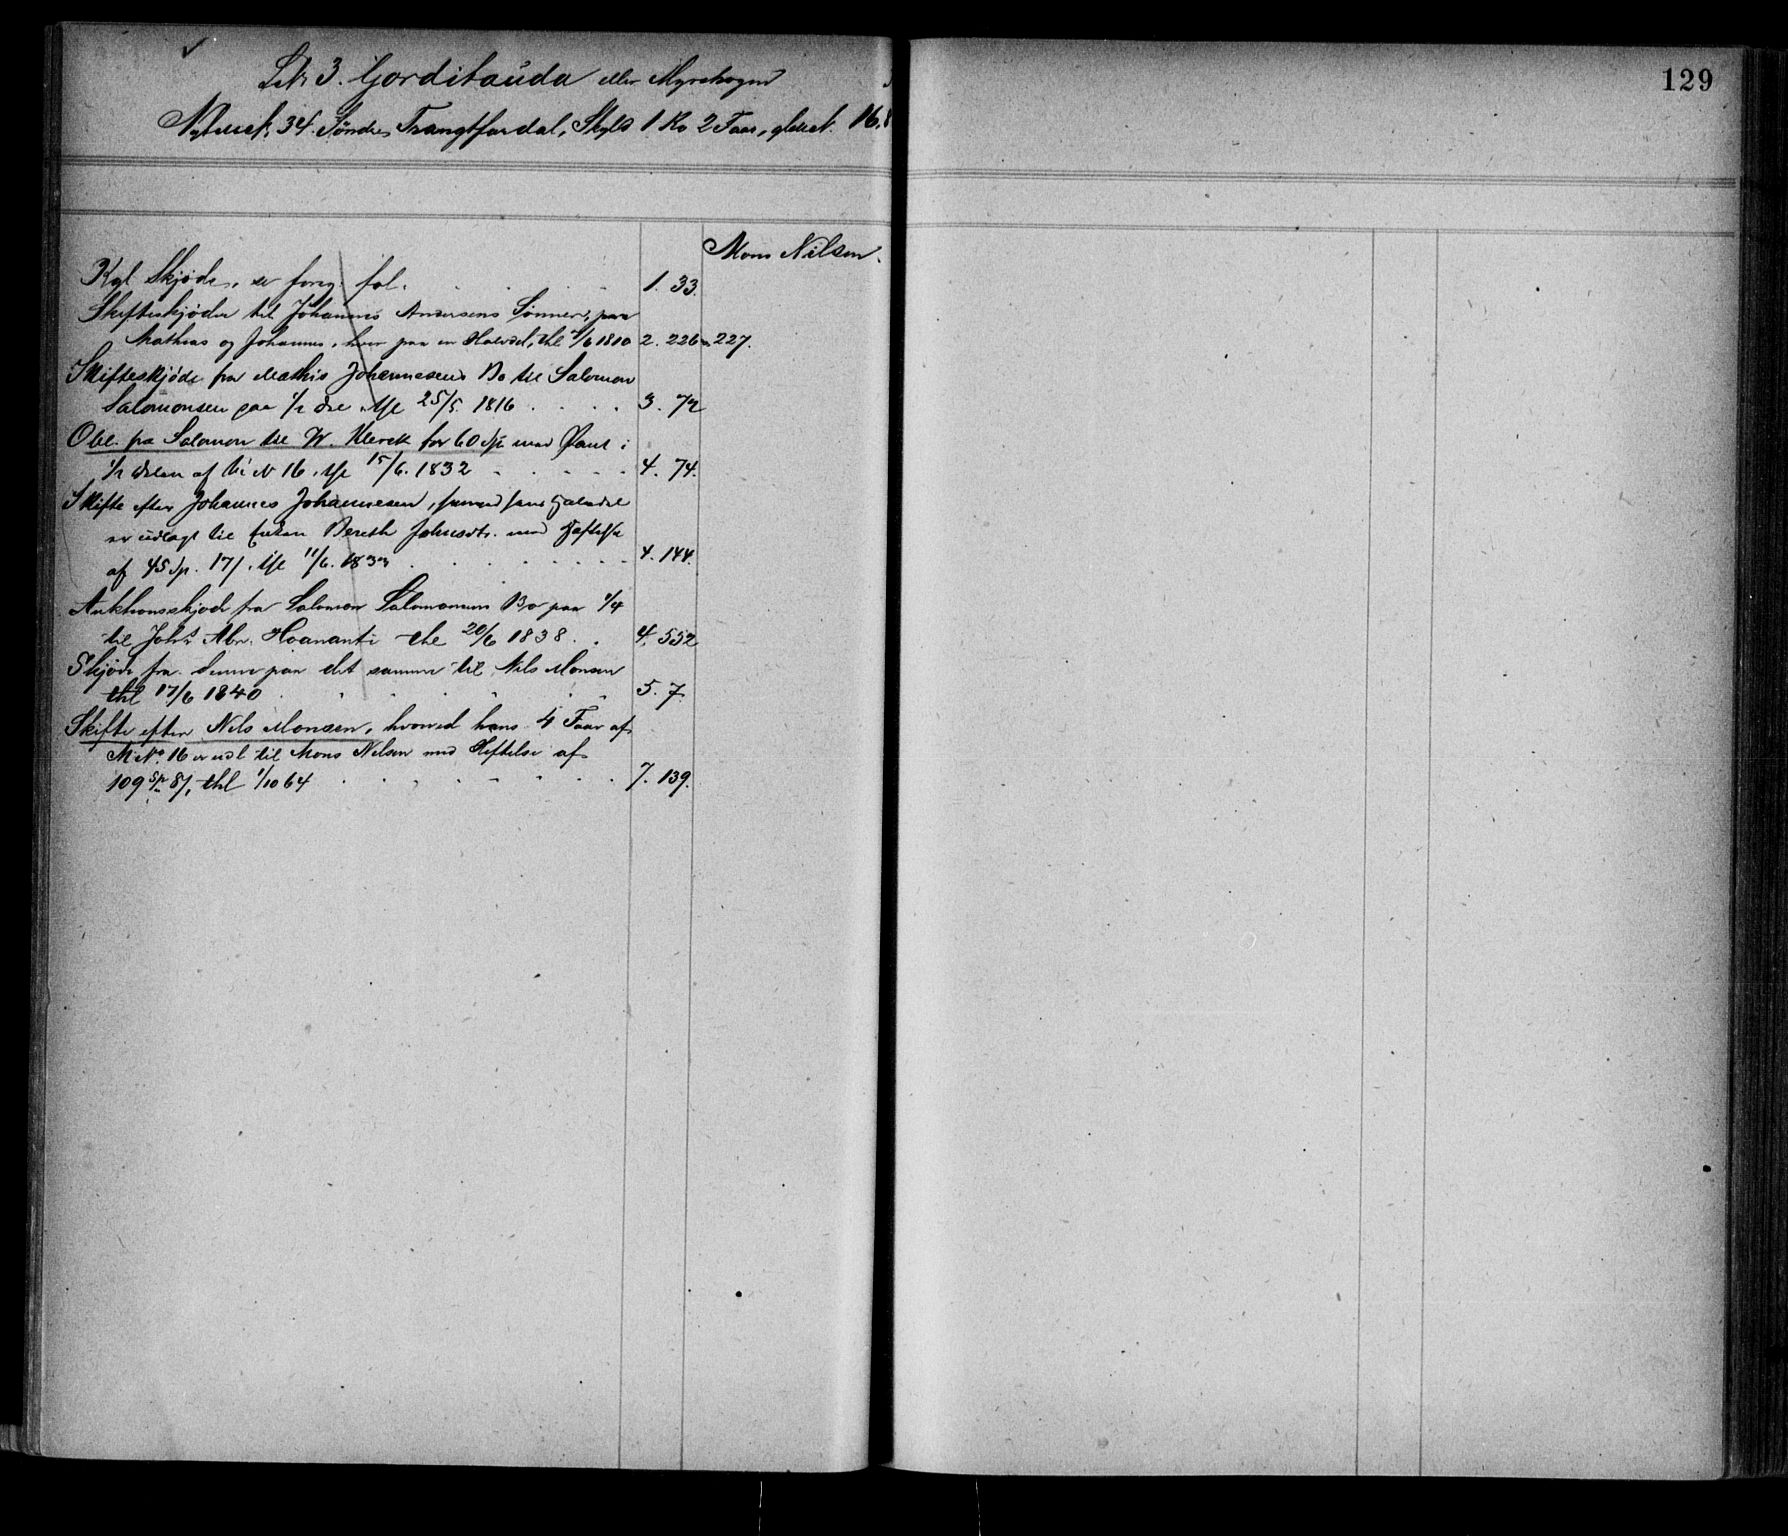 129
3. Gorditauda eller Myrehogen
34. Søndre Skyld 1 Ko 2 Faar, 16.8
Mons Nilsen.
Kgl Skjøde, se foreg. fol. 1. 33.
Skifteskjøder til Johannes Andersens Sønner,
Mathias og Johannes, hver paa en Halvdel, thl /6 1810 2. 226 227.
Skifteskjøde fra Mathis Johannesens Bo til Salomon
Salomonsen paa 1/2 thl 25/5. 1816 . . . . 3. 72
Obl. fra Salomon til W. Klerck for 60 Sp med Pant i
1/2 delen af N 16. thl 15/6. 1832 . . . . 4. 74.
Skifte efter Johannes Johannesen,
er udlagt til Enken Bereth med Heftelse
af 45 Sp. 17/. thl 11/6. 4. 144.
Auktionsskjøde fra Salomon Salomonsens Bo paa 1/4
til Johs Abr. Hoananti thl 20/6 1838. . 4. 552
Skjøde fra denne paa det samme til Nils Monsen
thl 17/6 1840 5. 7.
Skifte efter Nils Monsen, hvorved hans 4 Faar af
M No 16 er udl til Mons Nilsen med Heftelse af
109 Sp 8/, thl 1/10 64 7. 139.